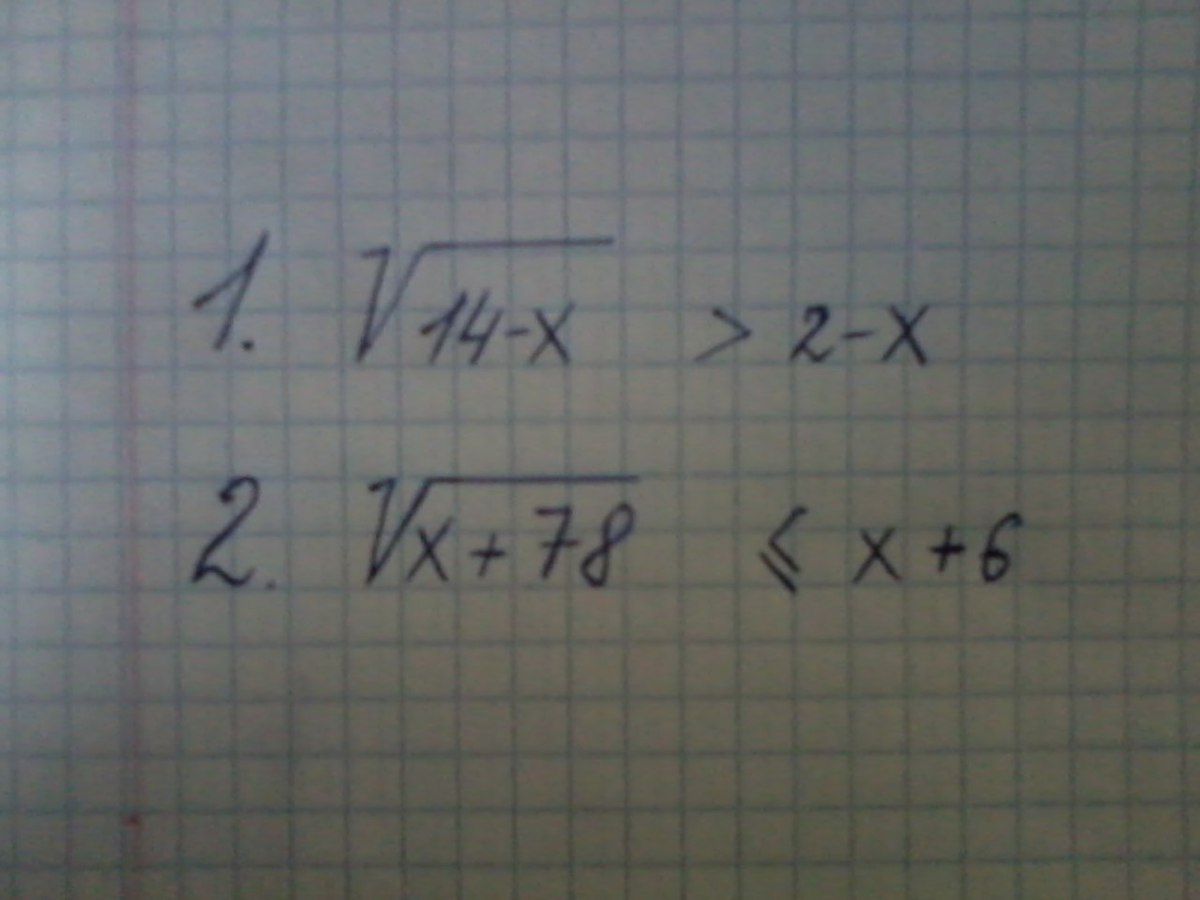 1. √14-x > 2-x
2. √x+78 ⩽ x+6